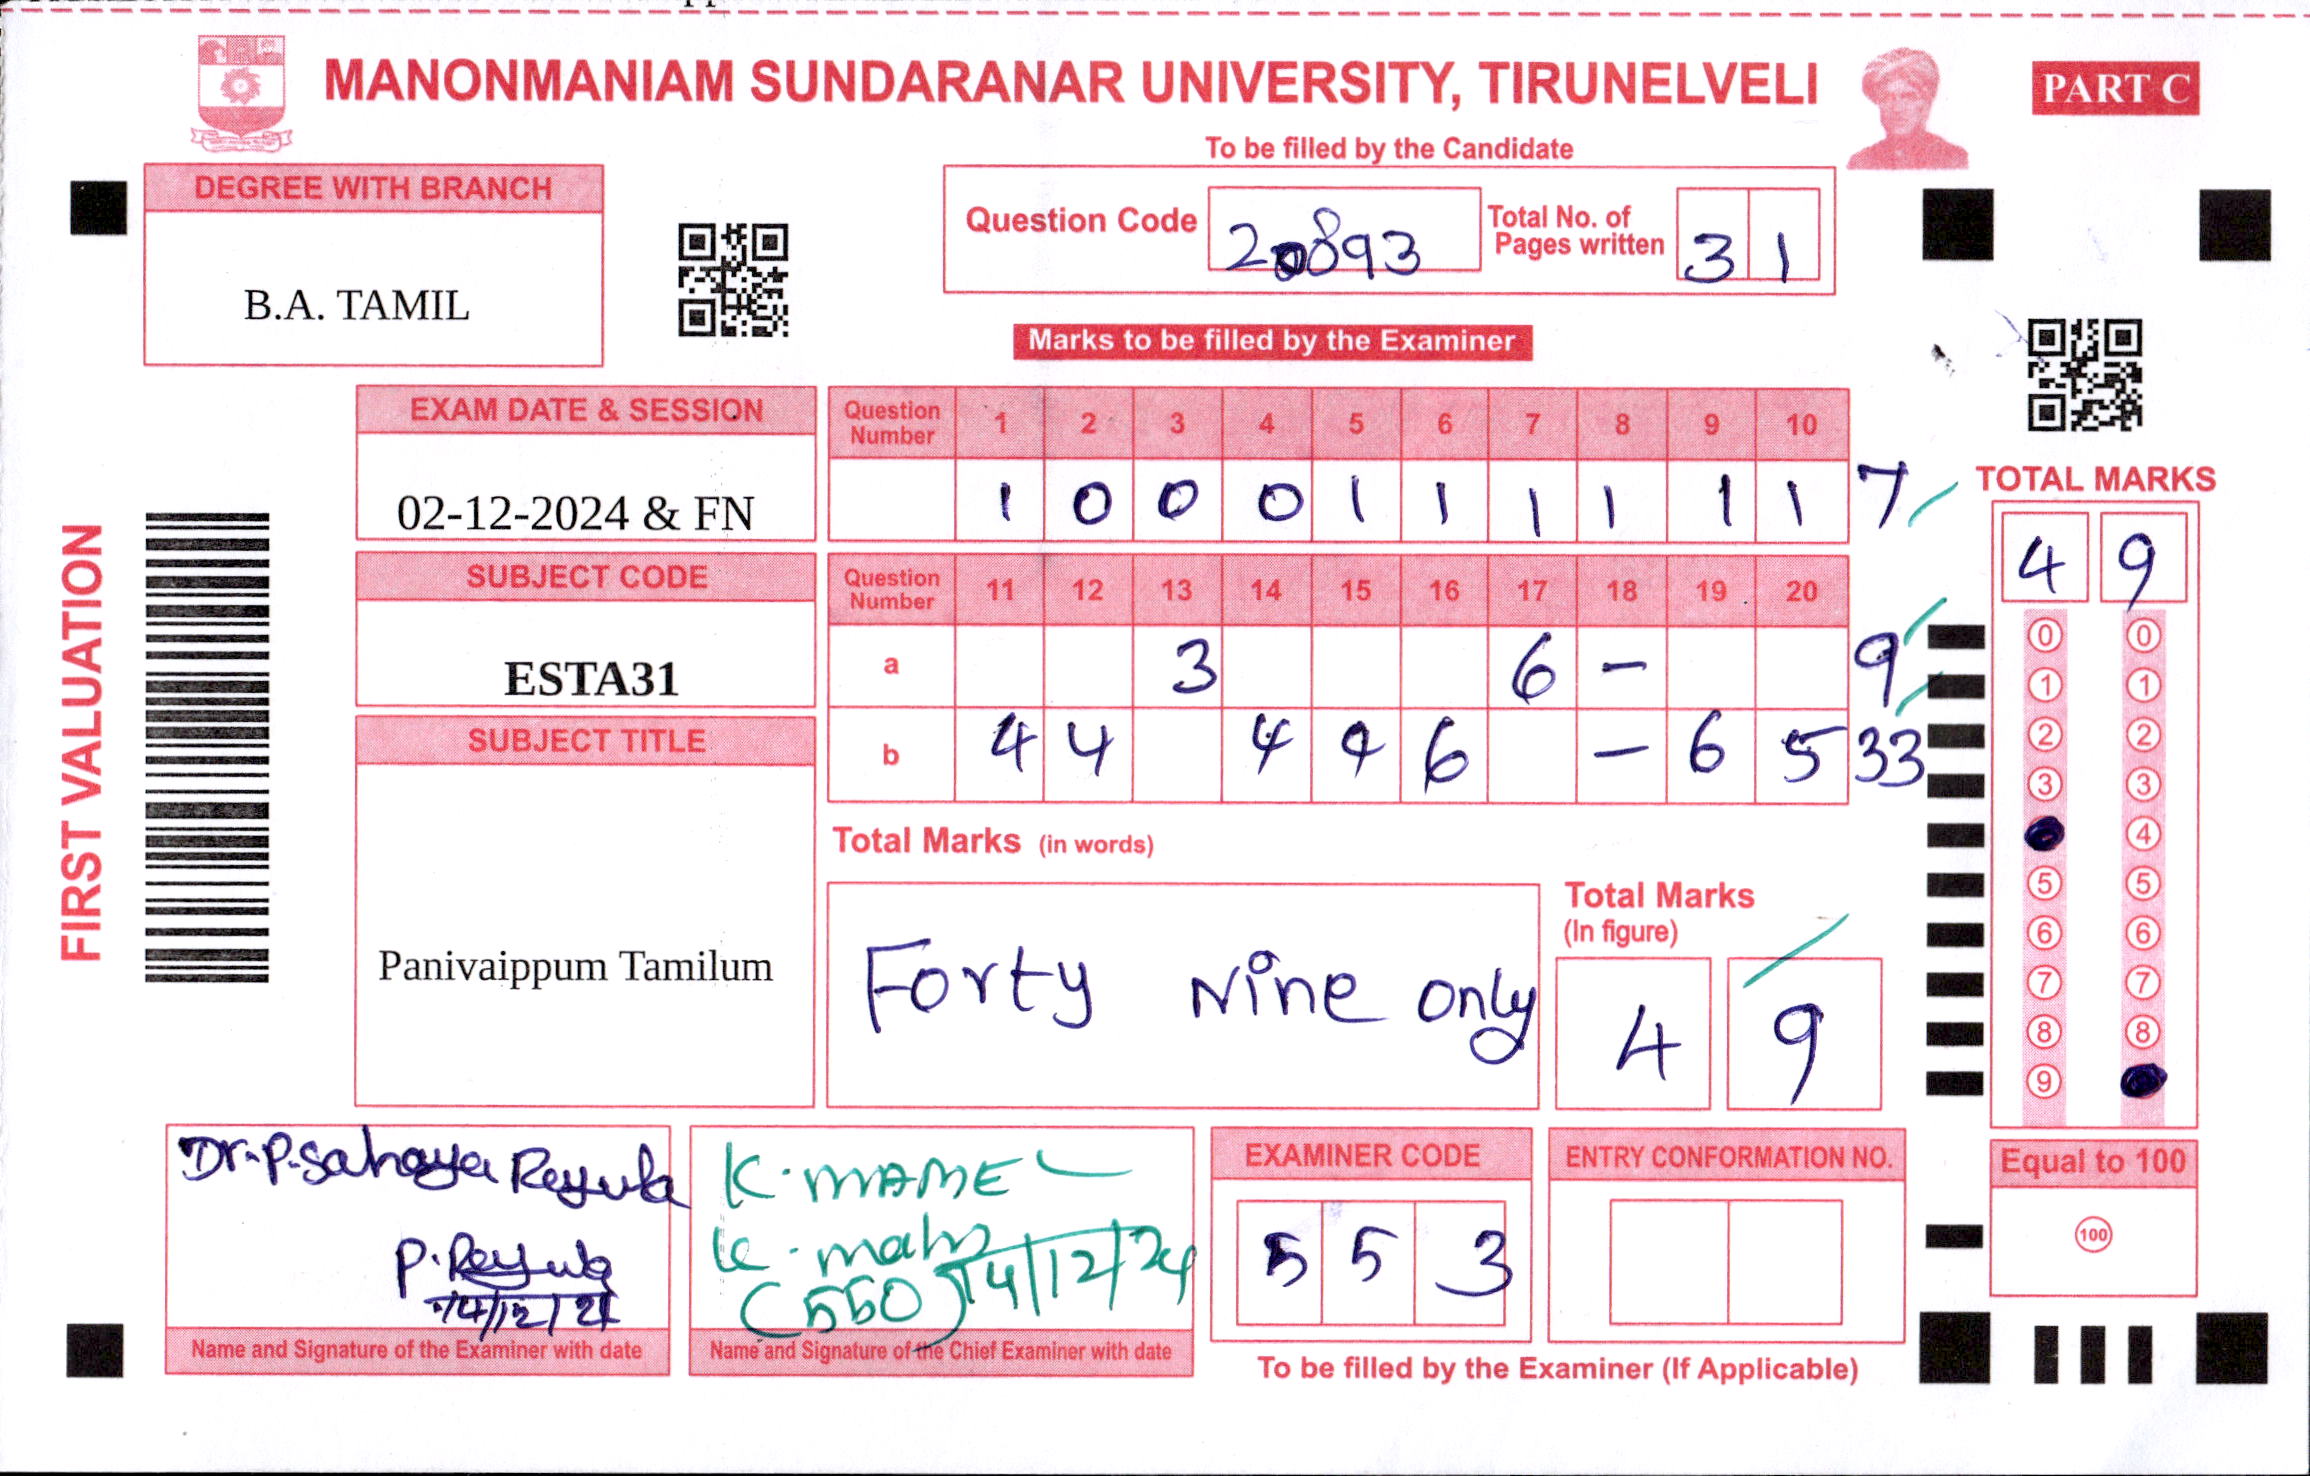 MANONMANIAM SUNDARANAR UNIVERSITY, TIRUNELVELI
PART C
To be filled by the Candidate
DEGREE WITH BRANCH
B.A. TAMIL
Question Code 20893 Total No. of Pages written 3 1
Marks to be filled by the Examiner
EXAM DATE & SESSION
02-12-2024 & FN
Question Number 1 2 3 4 5 6 7 8 9 10
1 0 0 0 1 1 1 1 1 1 7
SUBJECT CODE
ESTA31
Question Number 11 12 13 14 15 16 17 18 19 20
a 3 6 - 9
b 4 4 4 4 6 - 6 5 33
SUBJECT TITLE
Panivaippum Tamilum
FIRST VALUATION
Total Marks (in words)
Forty Nine only
Total Marks
(In figure)
4 9
TOTAL MARKS
4 9
0 0
1 1
2 2
3 3
4
5 5
6 6
7 7
8 8
9
Dr.P.Sahaya Reyula
P.Reyula
14/12/24
Name and Signature of the Examiner with date
(550) 14/12/24
Name and Signature of the Chief Examiner with date
EXAMINER CODE
5 5 3
ENTRY CONFORMATION NO.
To be filled by the Examiner (If Applicable)
Equal to 100
100